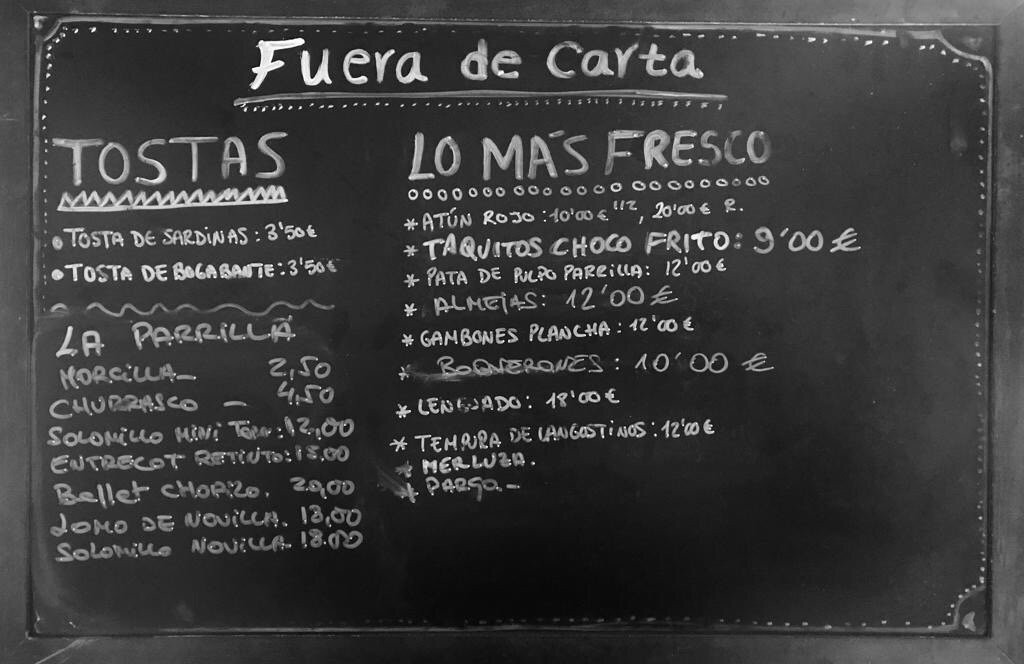 Fuera de Carta
TOSTAS
• TOSTA DE SARDINAS: 3'50€
• TOSTA DE BOGABANTE: 3'50€
LA PARRILLA
MORCILLA- 2,50
CHURRASCO - 4,50
SOLOMILLO MINI : 12,00
ENTRECOT RETINTO: 18.00
CHORIZO. 20,00
LOMO DE NOVILLA. 18,00
SOLOMILLO NOVILLA. 18.00
LO MÁS FRESCO
* ATÚN ROJO: 10'00€ 1/2, 20'00€ R.
* TAQUITOS CHOCO FRITO: 9'00€
* PATA DE PULPO PARRILLA: 12'00€
* ALMEJAS: 12'00€
* GAMBONES PLANCHA: 12'00€
* BOQUERONES: 10'00€
* LENGUADO: 18'00€
* TEMPURA DE LANGOSTINOS: 12'00€
* MERLUZA.
* PARGO.-